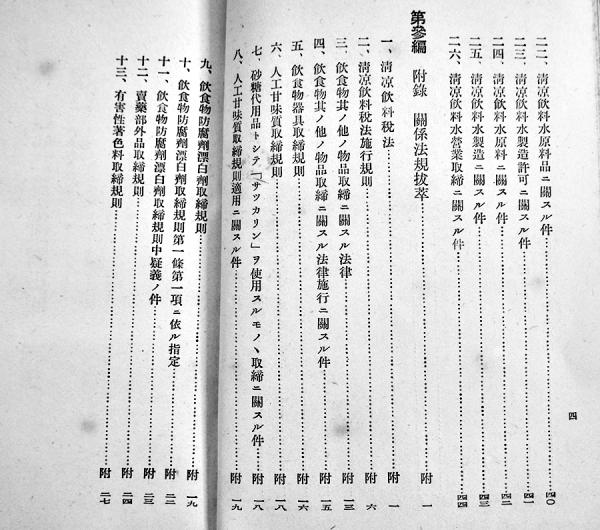 二二、清涼飲料水原料品ニ關スル件……四〇
二三、清涼飲料水製造許可ニ關スル件……四一
二四、清涼飲料水原料ニ關スル件……四二
二五、清涼飲料水製造ニ關スル件……四三
二六、清涼飲料水營業取締ニ關スル件……四四
第參編 附錄 關係法規拔萃……附 一
一、清涼飲料稅法……附 一
二、清涼飲料稅法施行規則……附 六
三、飲食物其ノ他ノ物品取締ニ關スル法律……附 一三
四、飲食物其ノ他ノ物品取締ニ關スル法律施行ニ關スル件……附 一五
五、飲食物器具取締規則……附 一六
六、人工甘味質取締規則……附 一八
七、砂糖代用品トシテ「サツカリン」ヲ使用スルモノヽ取締ニ關スル件……附 一八
八、人工甘味質取締規則適用ニ關スル件……附 一九
九、飲食物防腐劑漂白劑取締規則……附 一九
十、飲食物防腐劑漂白劑取締規則第一條第一項ニ依ル指定……附 二二
十一、飲食物防腐劑漂白劑取締規則中疑義ノ件……附 二三
十二、賣藥部外品取締規則……附 二四
十三、有害性著色料取締規則……附 二七
四